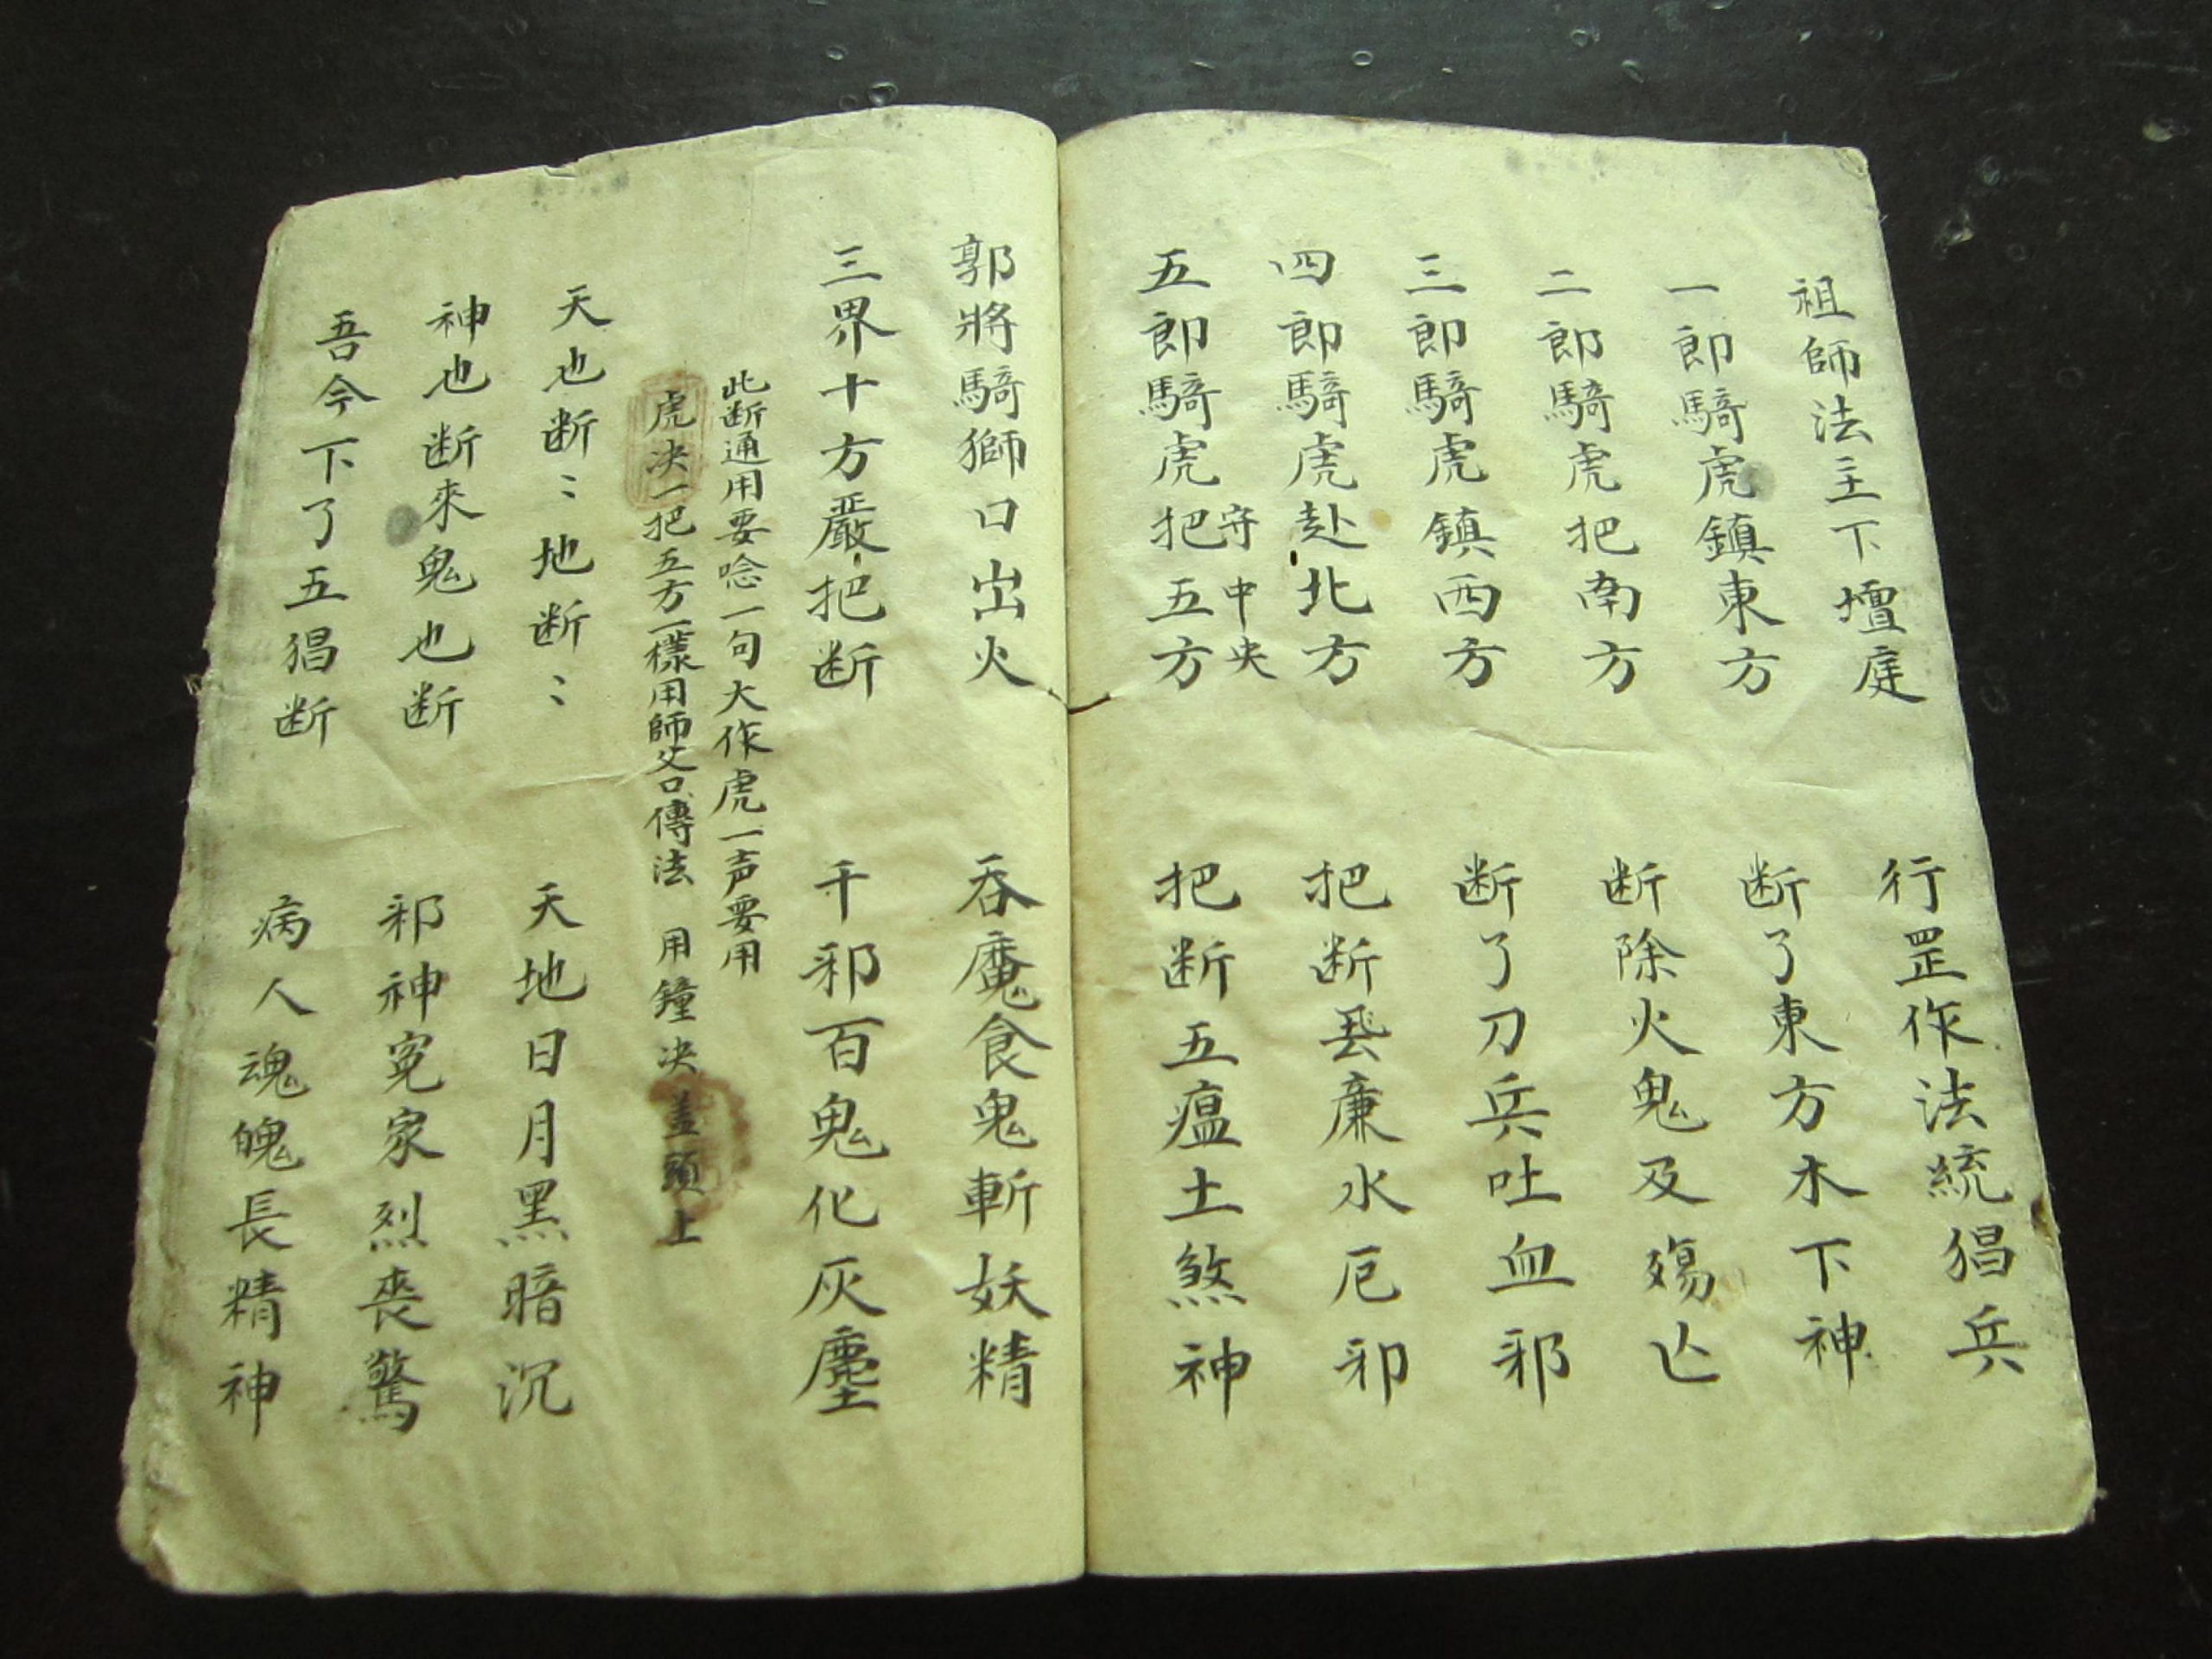 祖師法主下壇庭　行罡作法統猖兵
一郎騎虎鎮東方　断了東方木下神
二郎騎虎把南方　断除火鬼及殤亡
三郎騎虎鎮西方　断了刀兵吐血邪
四郎騎虎赴北方　把断 廉水厄邪
守中央
五郎騎虎把五方　把断五瘟土煞神
郭將騎獅口出火　吞魔食鬼斬妖精
三界十方嚴把断　千邪百鬼化灰塵
此断通用要唸一句大作虎一声要用
虎决一把五方一樣用師父口傳法　用鐘决盖頭上
天也断〻地断〻　天地日月黑暗沉
神也断來鬼也断　邪神冤家烈喪驚
吾今下了五猖断　病人魂魄長精神